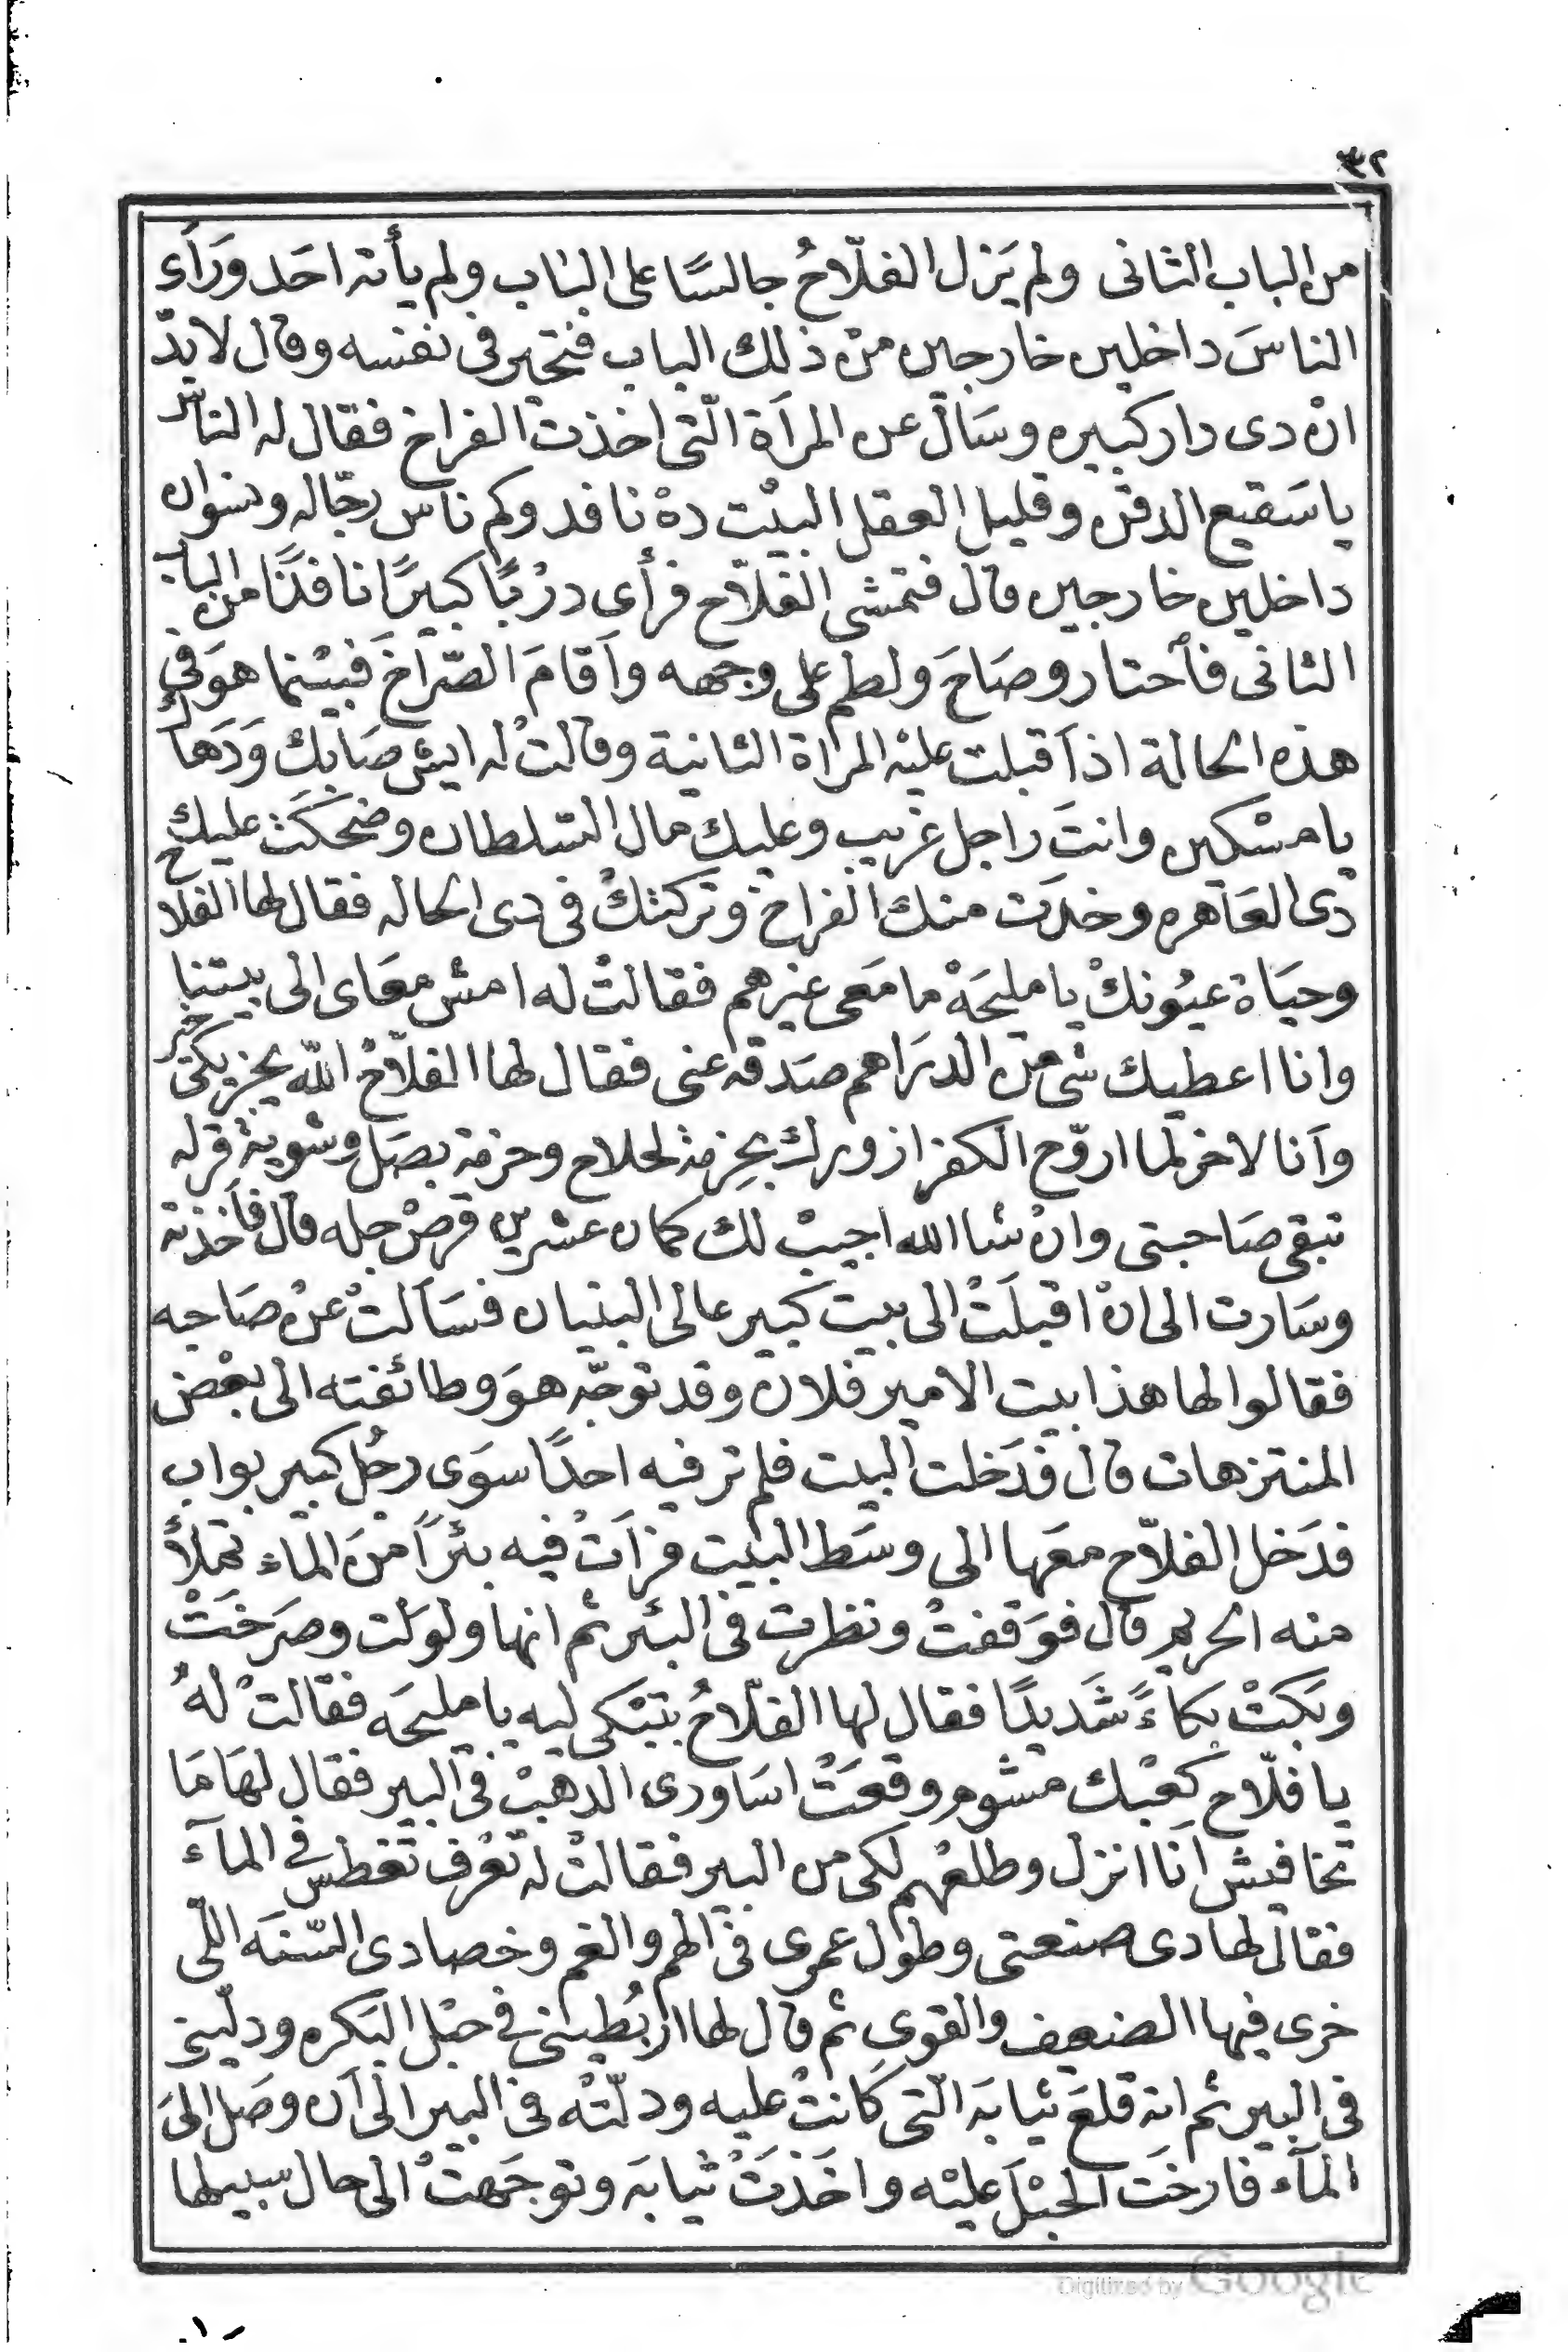 ٣٢
من الباب الثانى ولم يَزل الفلّاحُ جالسًا على الباب ولم يأته احَد ورَآء
الناسَ داخلين خارجين منْ ذلك الباب فتحيّر فى نفسه وقال لا بدّ
انْ دى دار كبيره وسَأل عن المرآة الّتى اخذت الفراخ فقال له الناس
يا سَقيع الدقن وقليل العقل البيْت دهْ نافد وكم ناس رجّاله ونسْوان
داخلين خارجين قال فتمشى الفلّاح فرأى درْبًا كبيرًا نافدًا من الباب
الثانى فأحتار وصَاحَ ولطم على وجهه وآقامَ الصّراخَ فبيْنما هوَ فى
هذه الحالة اذ آقبلت عليْه المرآة الثانية وقالتْ له ايش صَابك وَدَهاك
يا مسْكين وانتَ راجل غريب وعليك مال السّلطان وضحكَت عليك
دى العَاهره وخدَت منك الفراخ وتركتكْ فى دى الحاله فقال لها الفلاح
وحيَاة عيُونكْ يا مليحَهْ ما مَعى غيرهم فقالتْ له امش معَاى الى بيتنا
وانا اعطيك شى من الدرَاهم صَدقه عنى فقال لها الفلّاحْ الله يجزيكى خير
وآنا لاخر لما اروّح الكفر ازورك بحزمة لحلاح وحزمة بصَل وشوية قرله
تبقى صَاحبتى وانْ شا الله اجيبْ لك كمان عشرين قرصْ جله قال فآخذته
وسَارت الى انْ اقبلَتْ الى بيت كبير عالى البنيان فسَآلتْ عنْ صَاحبه
فقالوا لها هذا بيت الامير فلان وقد توجّه هوَ وطائفته الى بعْض
المنتزهات قال فدَخلت البيت فلم تر فيه احدًا سوَى رجُل كبير بواب
فدَخل الفلاّح معَها الى وسَط البيْت فرآتْ فيه بئرًا منَ الماء تملأُ
منه الحريم قال فوَقفتْ ونظرت فى البئر ثم انها ولوَلت وصرَخَتْ
وبَكتْ بكآءً شَديدًا فقال لها الفلّاحُ بتبْكى ليه يا مليحَه فقالتْ لهُ
يا فلّاح كعْبك مشوم وقعَتْ اسَاورى الدهبْ فى البير فقال لهَا مَا
تخافيش آنا انزل وطلعْهم لكى من البير فقالتْ له تعْرف تغطس فى المآء
فقال لها دى صنعتى وطول عمرى فى الهم والغم وخصا دى السّنَه اللّى
خرى فيها الضعيف والقوى ثم قال لها ارْبُطينى فى حبْل البَكره ودلّينى
فى البير ثم انه قلعَ ثيابَه التى كانتْ عليه ودلّتْه فى البير الى آن وصَل الىَ
المآء فارخَت الحبْلَ عليْه واخَذَتْ ثيابَه وتوجَهتْ الى حال سبيلها
Digitized by Google